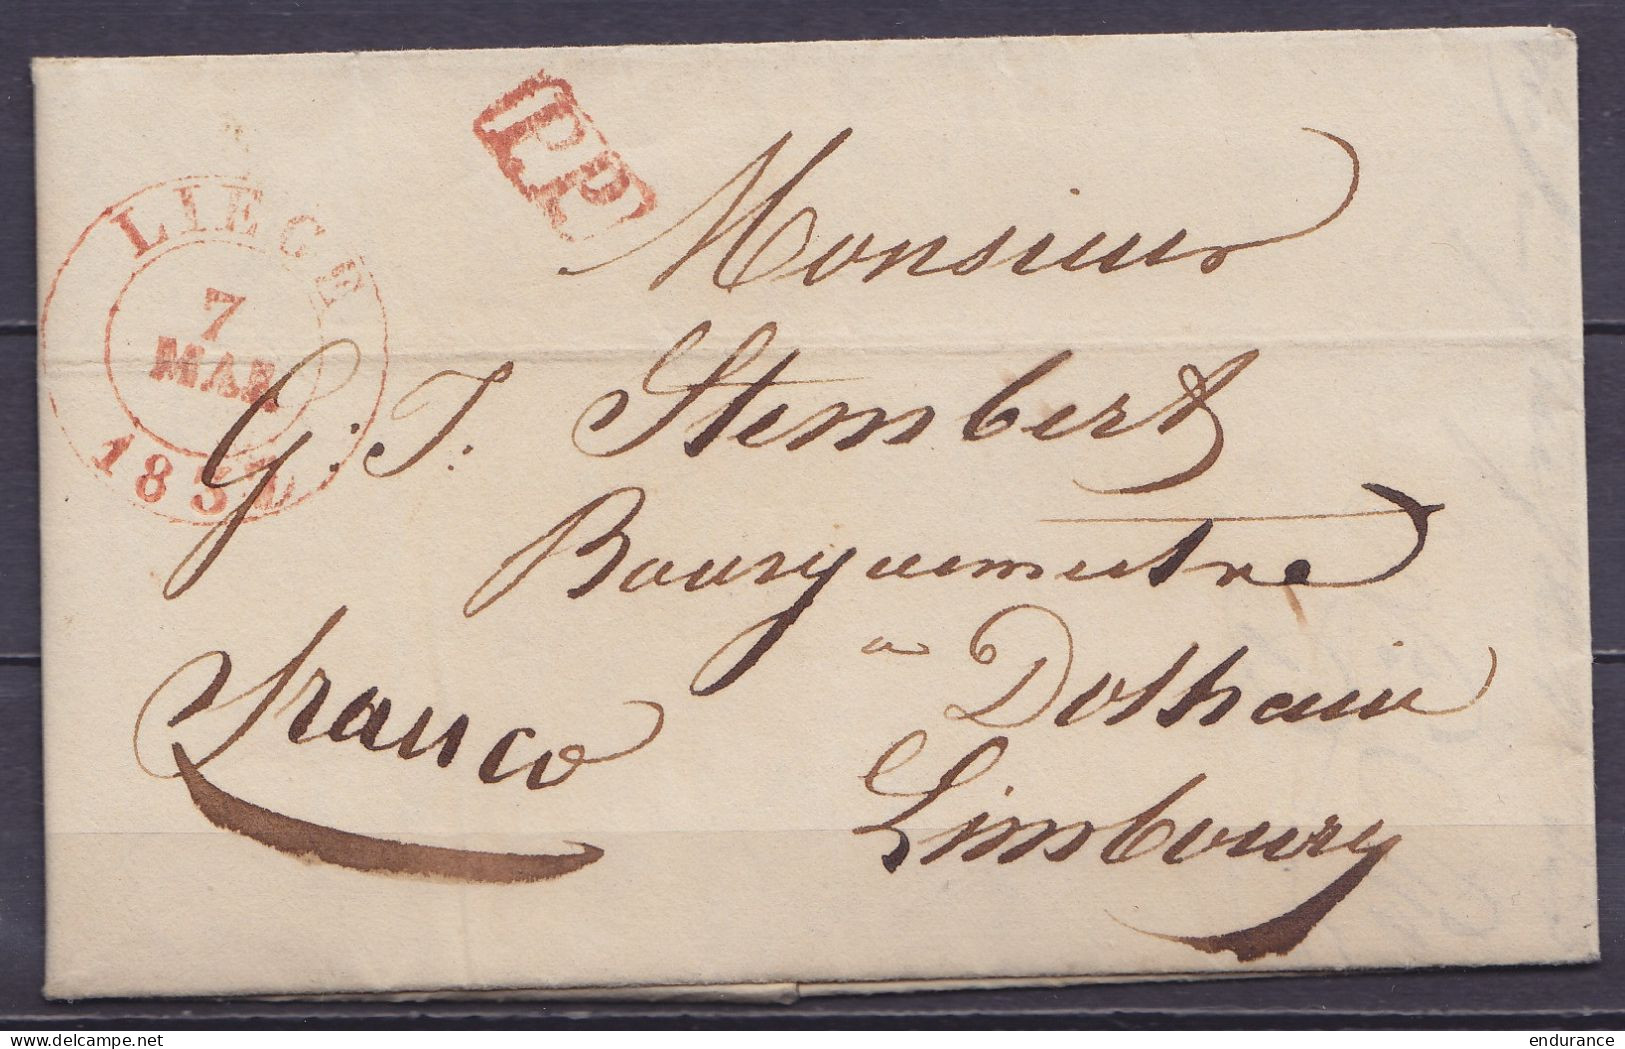 LIEGE
7
MAR
PP
Monsieur
G: J. Stembert
Bourguemestre
a Dolhain
Limbourg
Franco
delcampe.net
endurance